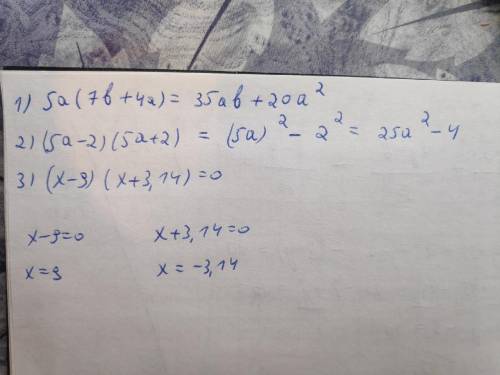 1) 5a(7b+4a) = 35ab+20a²
2) (5a-2)(5a+2) = (5a)² - 2² = 25a² - 4
3) (x-9) (x+3,14)=0
x-9=0 x+3,14=0
x=9 x = -3,14